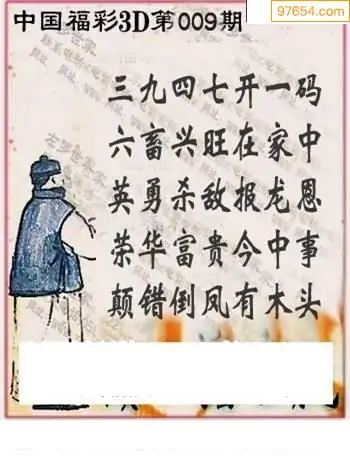 97654.com
中国福彩3D第009期
三九四七开一码
六畜兴旺在家中
英勇杀敌报龙恩
荣华富贵今中事
颠错倒凤有木头